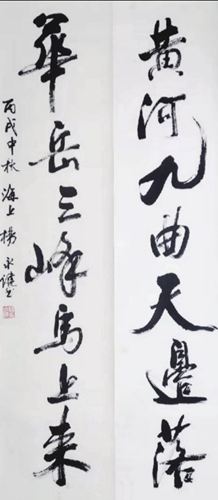 黄河九曲天邊落
華岳三峰馬上来
丙戌中秋海上楊永健書